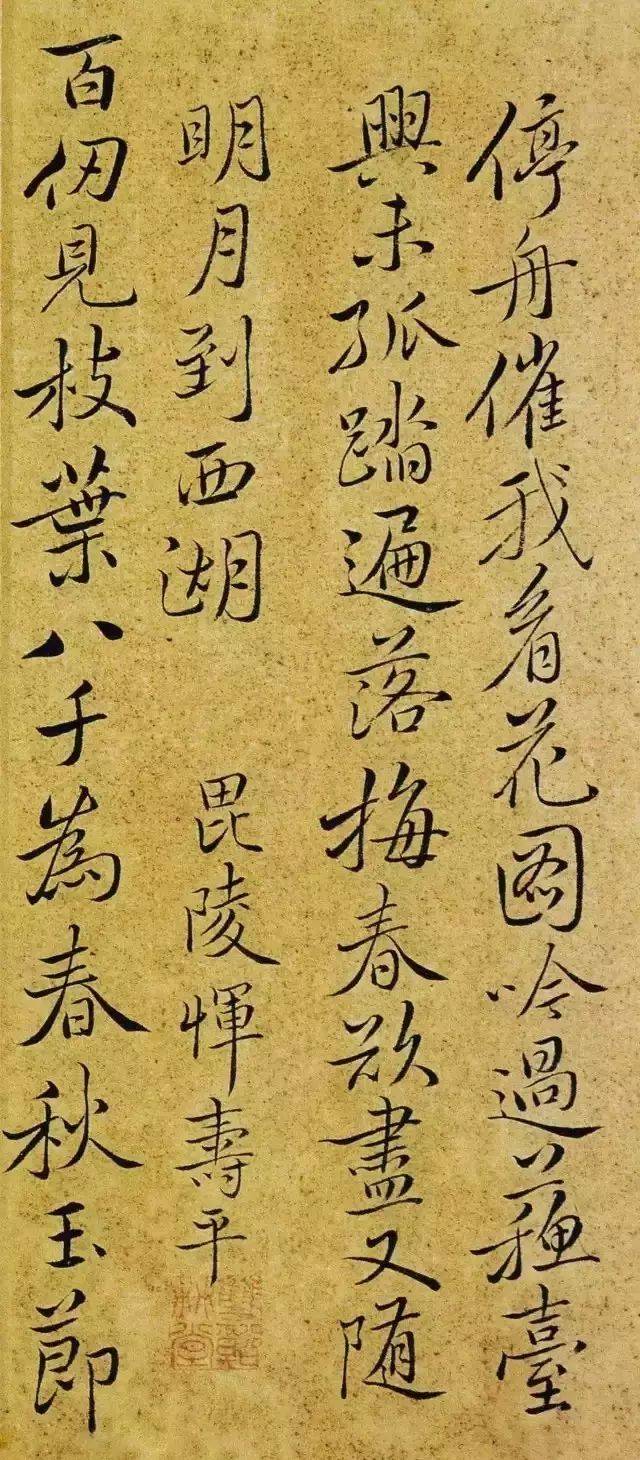 停舟催我看花図吟過蘓臺
興未孤踏遍落梅春欲盡又随
明月到西湖
毘陵惲壽平
百仞見枝葉八千為春秋玉節